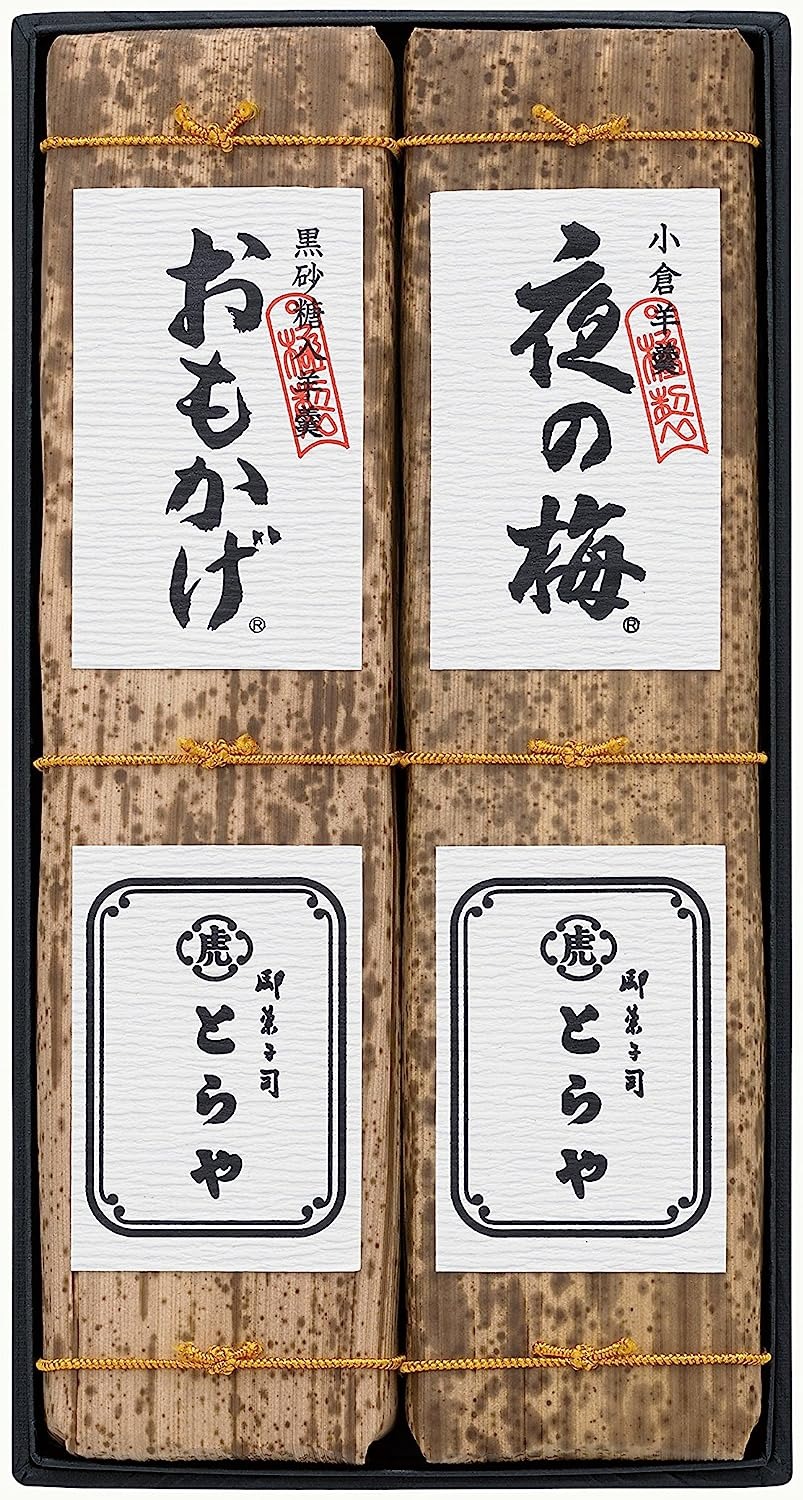 小倉羊羹
夜の梅
®
黒砂糖入羊羹
おもかげ
®
虎
御菓子司
とらや
虎
御菓子司
とらや